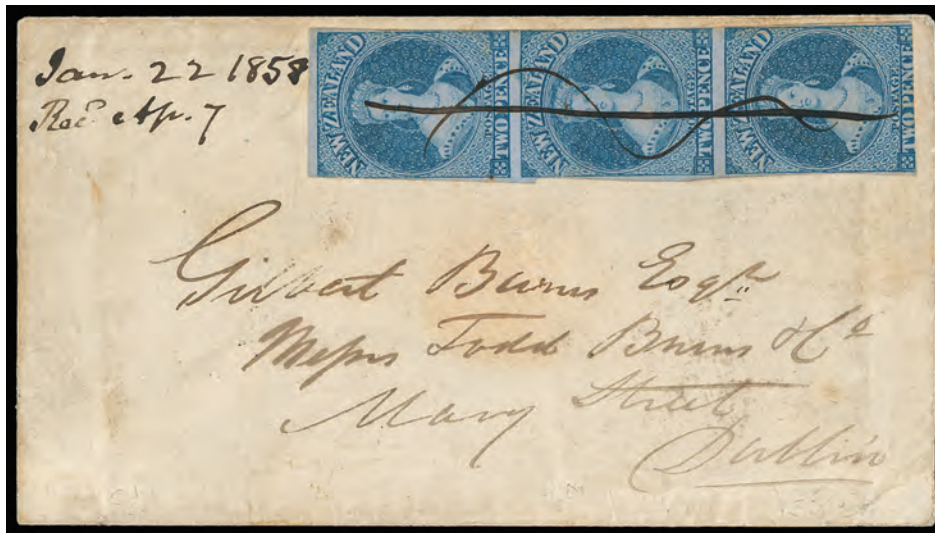 Jan. 22 1858
Rec Ap. 7
NEW ZEALAND POSTAGE TWO PENCE
NEW ZEALAND POSTAGE TWO PENCE
NEW ZEALAND POSTAGE TWO PENCE
Gilbert Burns Esqr
Messrs Todd Burns & Co
Mary Street
Dublin